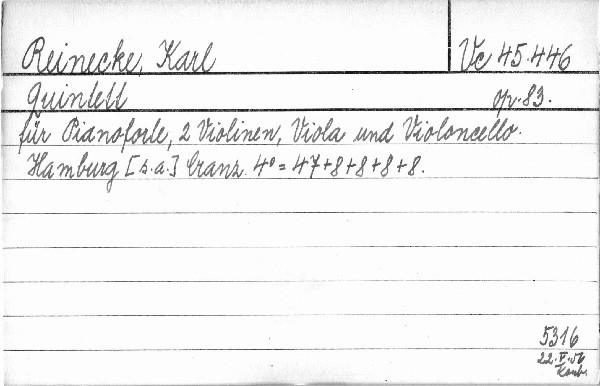 Reinecke, Karl Vc 45.446
Quintett op. 83.
für Pianoforte, 2 Violinen, Viola und Violoncello.
Hamburg [s.a.] Cranz. 4° = 47+8+8+8+8.
5316
22.V.56